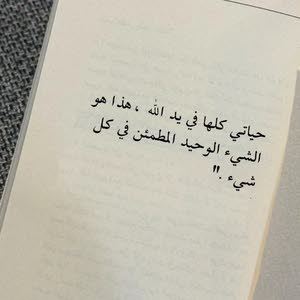 حياتي كلها في يد الله ، هذا هو
الشيء الوحيد المطمئن في كل
شيء ."